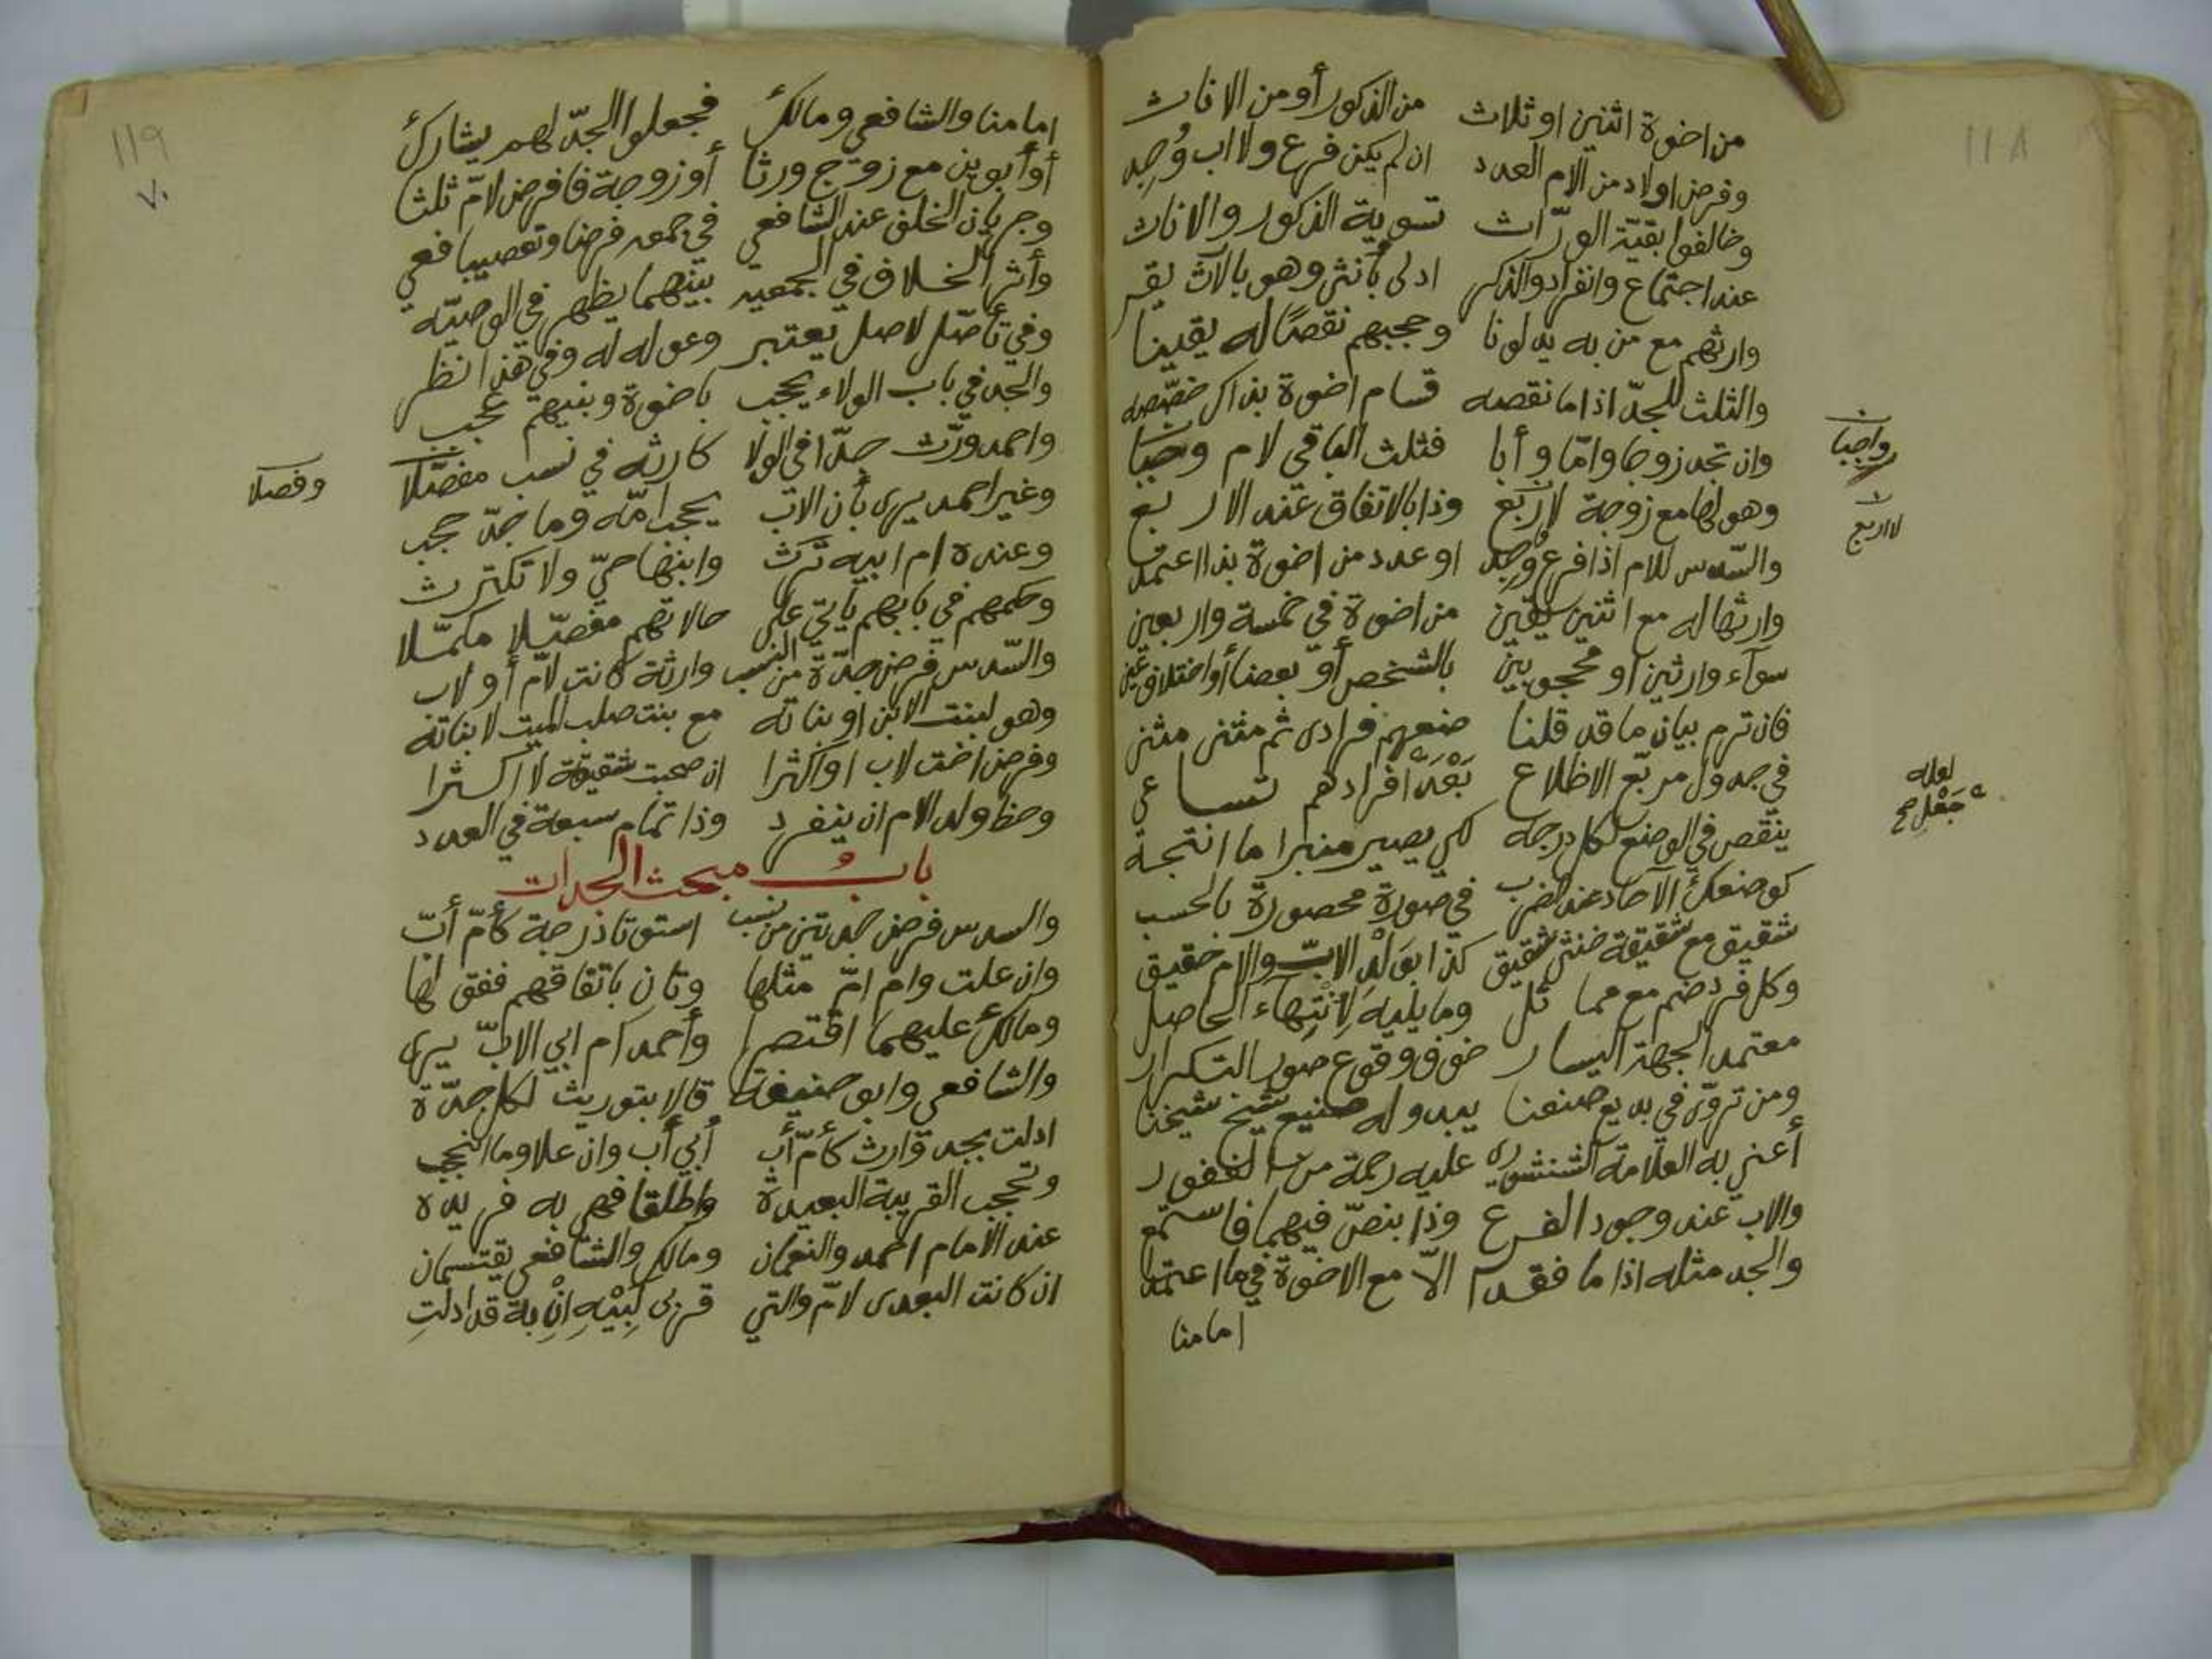 ١١٨
من اخوة اثنين او ثلاث من الذكور أو من الاناث
وفرض اولاد من الام العدد ان لم يكن فرع ولا اب وُجِد
وخالفوا بقيّة الورّاث تسوية الذكور والاناث
عند اجتماع وانفراد والذكر ادلى بأنثى وهو بالارث يقر
وارثهم مع من به يدلونا وحجبهم نقصًا له يقينا
والثلث للجدّ اذا ما نقصه قسام اخوة بذا كن خصّصه
وان تجد زوجا وامّا وأبا فثلث الباقي لام وجبا
واجبان
وهو لها مع زوجة لا اربع وذا بالاتفاق عند الاربع
لا اربع
والسّدس للام اذا فرع وُجد او عدد من اخوة بذا اعتمد
وارثها له مع اثنين يقين من اخوة في خمسة واربعين
سوآء وارثين او محجوبين بالشخص أو بعضا أو اختلاف عين
فان ترم بيان ما قد قلنا ضعهم فرادى ثم مثنى مثنى
في جدول مربّع الاظلاع بَعْد افرادهم تساعي
لعله جَعْلِ صح
ينقص في الوضع لكل درجة لكي يصير منبرا ما انتجه
كوضعك الآحاد عند الضرب في صورة محصورة بالحسب
شقيق مع شقيقة خنثى شقيق كذا بوَلَدِ الابّ والام حقيق
وكل فرد ضم مع مما ثل وما يليه لِانْتِهاء الحاصل
معتمد الجهة اليسار خوف وقوع صور التكرار
ومن تروّى في بديع صنعنا يبدو له صنيع شيخ شيخنا
أعني به العلامة الشنشوري عليه رحمة من الغفور
والاب عند وجود الفرع وذا بنصّ فيهما فاستمع
والجد مثله اذا ما فقدا الاّ مع الاخوة في ما اعتمدا
امامنا
١١٩
٧٠
امامنا والشافعي ومالك فجعلوا الجدّ لهم يشارك
أو أبوين مع زوج ورثا أو زوجة فافرض لامّ ثلثا
وجريان الخلف عند الشافعي في جمعه فرضا وتعصيبا فعي
وأثر الخلاف في الجمعيه بينهما يظهر في الوصيّه
وفي تأصّل لاصل يعتبر وعوله له وفي هذا نظر
والجد في باب الولاء يحجب باخوة وبنيهم عجب
واحمد ورّث جدّا في الولا كارثه في نسب مفصّلا
وفصلا
وغير احمد يرى بأن الاب يحجب امّه وما جدّ حجب
وعنده ام ابيه تَرث وابنها حيّ ولا تكترث
وحكمهم في بابهم يأتي على حالاتهم مفصّلا مكمّلا
والسّدس فرض جدّة من النسب وارثة كانت لامّ أو لاب
وهو لبنت الابن او بناته مع بنت صلب الميت لا بناته
وفرض اخت لاب او اكثرا ان صحبت شقيقة لا اكثرا
وحظ ولد الام ان ينفرد وذا تمام سبعة في العدد
بابُ مبحث الجدات
والسدس فرض جدتين من نسب استوتا درجة كأمّ أبّ
وان علت وام امّ مثلها وتان باتفاقهم ففق لها
ومالك عليهما اقتصرا وأحمد ام ابي الابّ يرى
والشافعي وابو حنيفة قالا بتوريث لكل جدّة
ادلت بجد وارث كأمّ أب أبي أب وان علا وما انحجب
وتحجب القريبة البعيدة واطلقا فهي به فريده
عند الامام احمد والنعمان ومالك والشافعي يقتسمان
ان كانت البعدى لامّ والتي قربى لِبِيْهِ اِنْ به قد ادلتِ